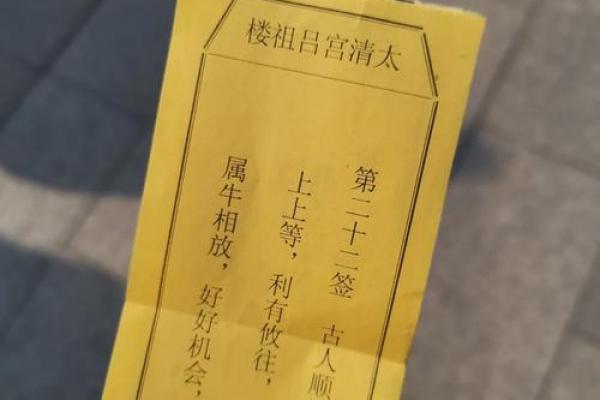 太清宫吕祖楼
第二十二签 古人顺
上上等，利有攸往，
属牛相放，好好机会，